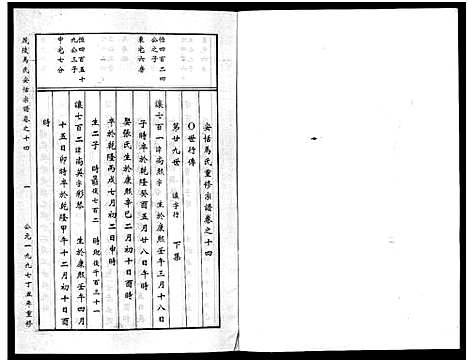 安恬馬氏重修宗譜卷之十四
○世行傳
第廿九世 遠字行 下集
讓七百一 諱尚熙 生於康熙壬午三月十八日
子時卒於乾隆癸酉五月廿八日午時
娶張氏生於康熙辛巳二月初十日申時
卒於乾隆丙戌七月初二日申時
生二子 時 後七百二 時 後千百三十一
讓七百二 諱尚英字彩琴 生於康熙壬午四月
十五日卯時卒於乾隆甲午十二月初十日酉
時
恒四百二四
公之子
東宅六房
恒四百五十
九公三子
中宅七分
茂陵馬氏安恬宗譜卷之十四
一
公元一九九七丁丑年重修